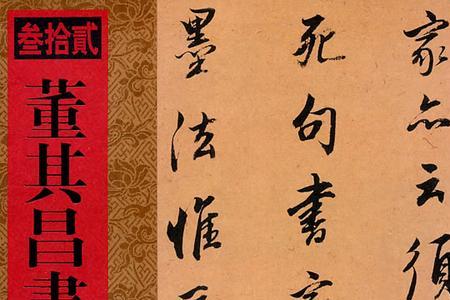 叁拾貳
董其昌書
家亦云須
死句書家
墨法惟